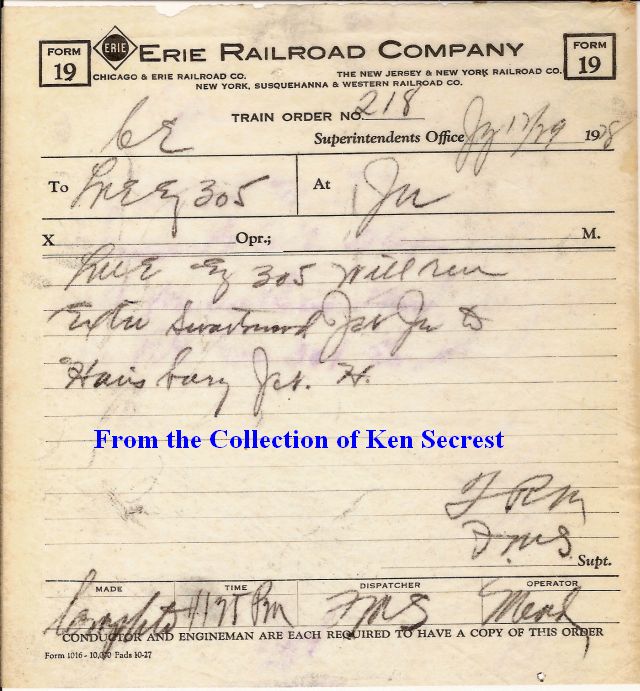 FORM 19
ERIE
ERIE RAILROAD COMPANY
FORM 19
CHICAGO & ERIE RAILROAD CO. THE NEW JERSEY & NEW YORK RAILROAD CO.
NEW YORK, SUSQUEHANNA & WESTERN RAILROAD CO.
TRAIN ORDER NO. 218
Superintendents Office 1928
To Eng 305 At Jn
X Opr.; M.
Eng 305 will run
Extra Swartwood Jct Jn to
Hainsburg Jct. H.
From the Collection of Ken Secrest
Supt.
MADE TIME DISPATCHER OPERATOR
Complete PM
CONDUCTOR AND ENGINEMAN ARE EACH REQUIRED TO HAVE A COPY OF THIS ORDER
Form 1016 - 10,000 Pads 10-27